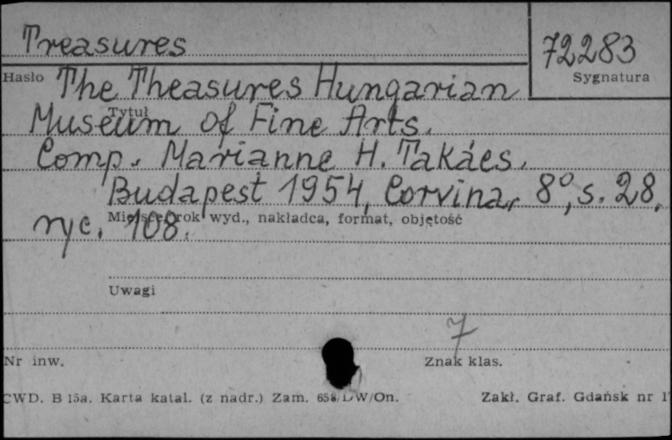 Treasures
72283
Hasło
Sygnatura
The Theasures Hungarian
Tytuł
Museum of Fine Arts.
Comp. Marianne H. Takács.
Budapest 1954, Corvina, 8°, s. 28,
Miejsce, rok wyd., nakładca, format, objętość
ryc. 108.
Uwagi
7
Nr inw.
Znak klas.
CWD. B 15a. Karta katal. (z nadr.) Zam. 658/DW/On.
Zakł. Graf. Gdańsk nr 1